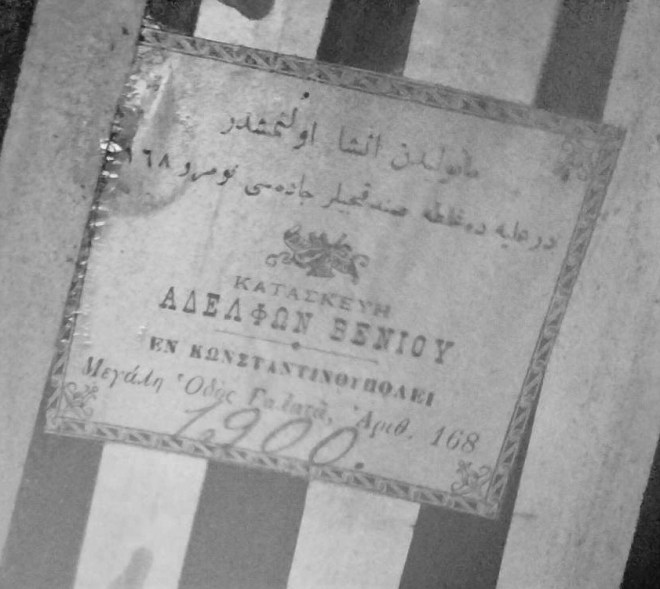 مانولیدن انشا اولنمشدر
در علیه ده غلطه صندقجیلر جاده سی نومرو ١٦٨
ΚΑΤΑΣΚΕΥΗ
ΑΔΕΛΦΩΝ ΒΕΝΙΟΥ
ΕΝ ΚΩΝΣΤΑΝΤΙΝΟΥΠΟΛΕΙ
Μεγάλη Ὁδὸς Γαλατᾶ, Ἀριθ. 168
1900.